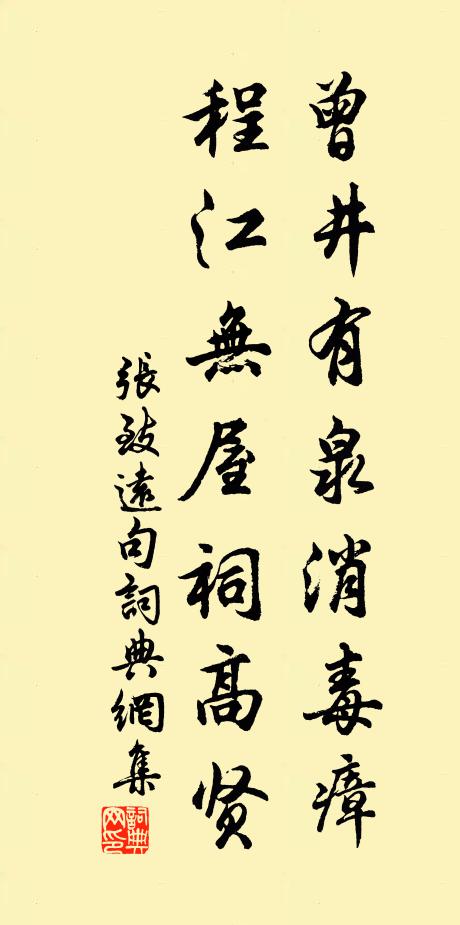 曾井有泉消毒瘴
程江無屋祠高贤
張致遠句詞典網集
詞典网印